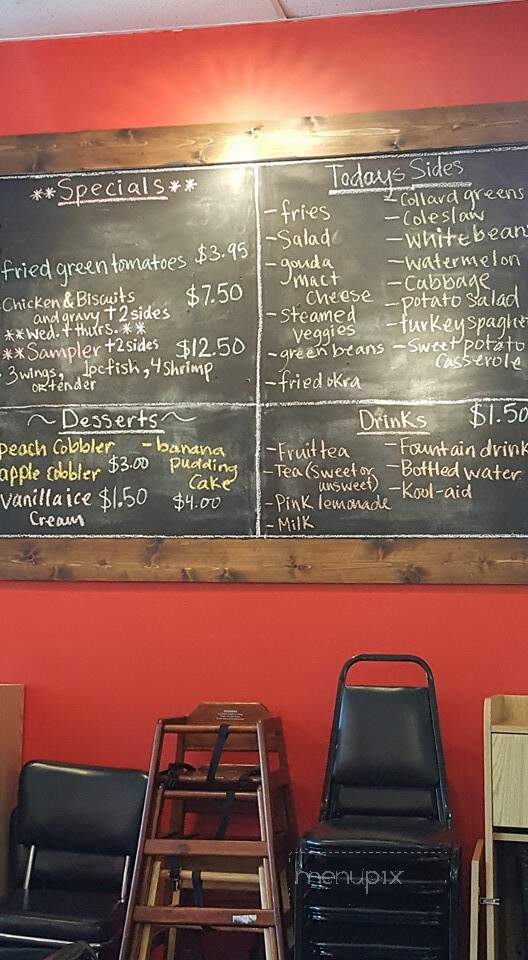 **Specials**
fried green tomatoes $3.95
Chicken & Biscuits $7.50
and gravy +2 sides
**Wed. + thurs.**
**Sampler +2 sides $12.50
3 wings, 1pc fish, 4 shrimp
or tender
Todays Sides
- fries
- Salad
- gouda
mact
Cheese
- Steamed
Veggies
- green beans
- fried okra
- Collard greens
- Coleslaw
- White beans
- watermelon
- Cabbage
- potato Salad
- turkey spaghet
- Sweet potato
Casserole
~ Desserts ~
peach Cobbler
apple Cobbler $3.00
vanilla ice $1.50
Cream
- banana
pudding
Cake
$4.00
Drinks $1.50
- Fruit tea
- Tea (Sweet or
unsweet)
- Pink lemonade
- Milk
- Fountain drink
- Bottled water
- Kool-aid
menupix